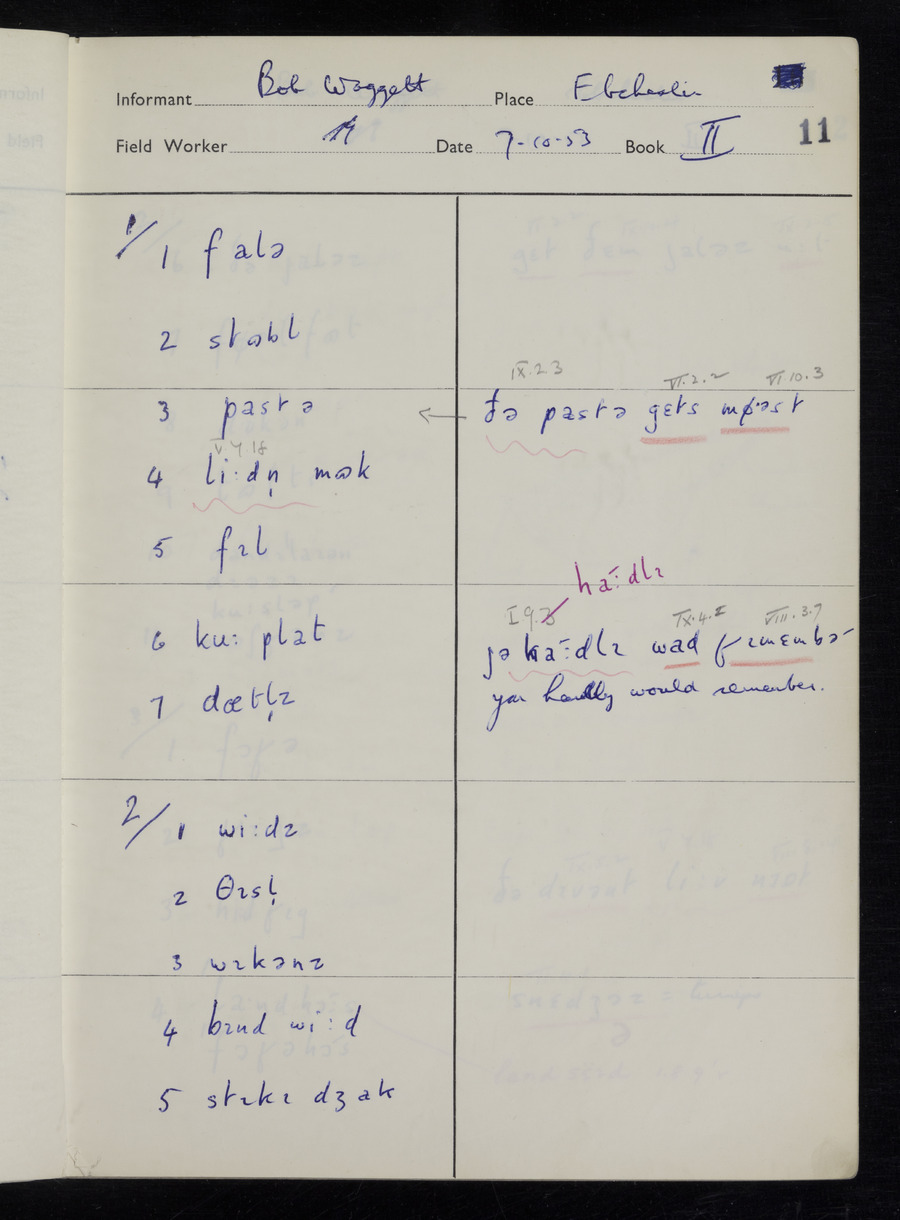 Informant Bob Waggett Place Ebchester
Field Worker Date 7-10-53 Book II 11
1/ 1 falə
2 stʊbl
3 pastə
IX.2.3 VI.2.2 VI.10.3
← ðə pastə gɛts
V.4.18
4 li:dn̩ mʊk
5 fɪl
ha:dlɪ
6 ku: plat
I 9.3 IX.4.2 VIII.3.7
jə ha:dlɪ wad rɪmɛmbə
you hardly would remember.
7 dœtl̩ɪ
2/ 1 wi:dɪ
2 θɪsl̩
3 wɪkənɪ
4 bɪnd wi:d
5 stɪkɪ dʒak